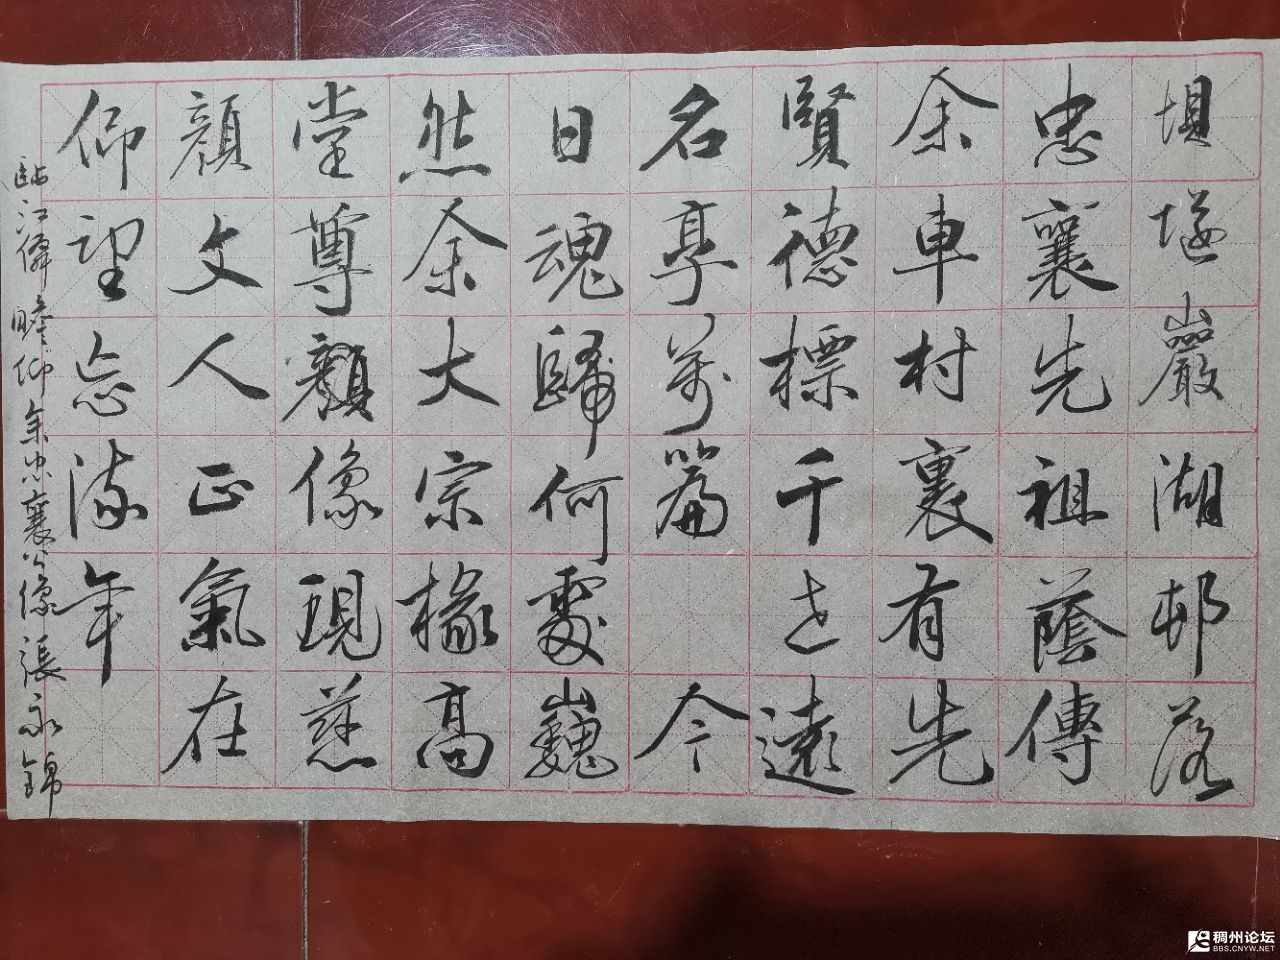 埧堰巖湖邨落
忠襄先祖蔭傳
余車村裏有先
賢德標千古遠
名亭萬篇 今
日魂歸何處巍
然余大宗椽高
堂尊顏像現慈
顏文人正氣在
仰望忘流年
臨江 瞻仰余忠襄公像張永錦
稠州论坛
BBS.CNYW.NET